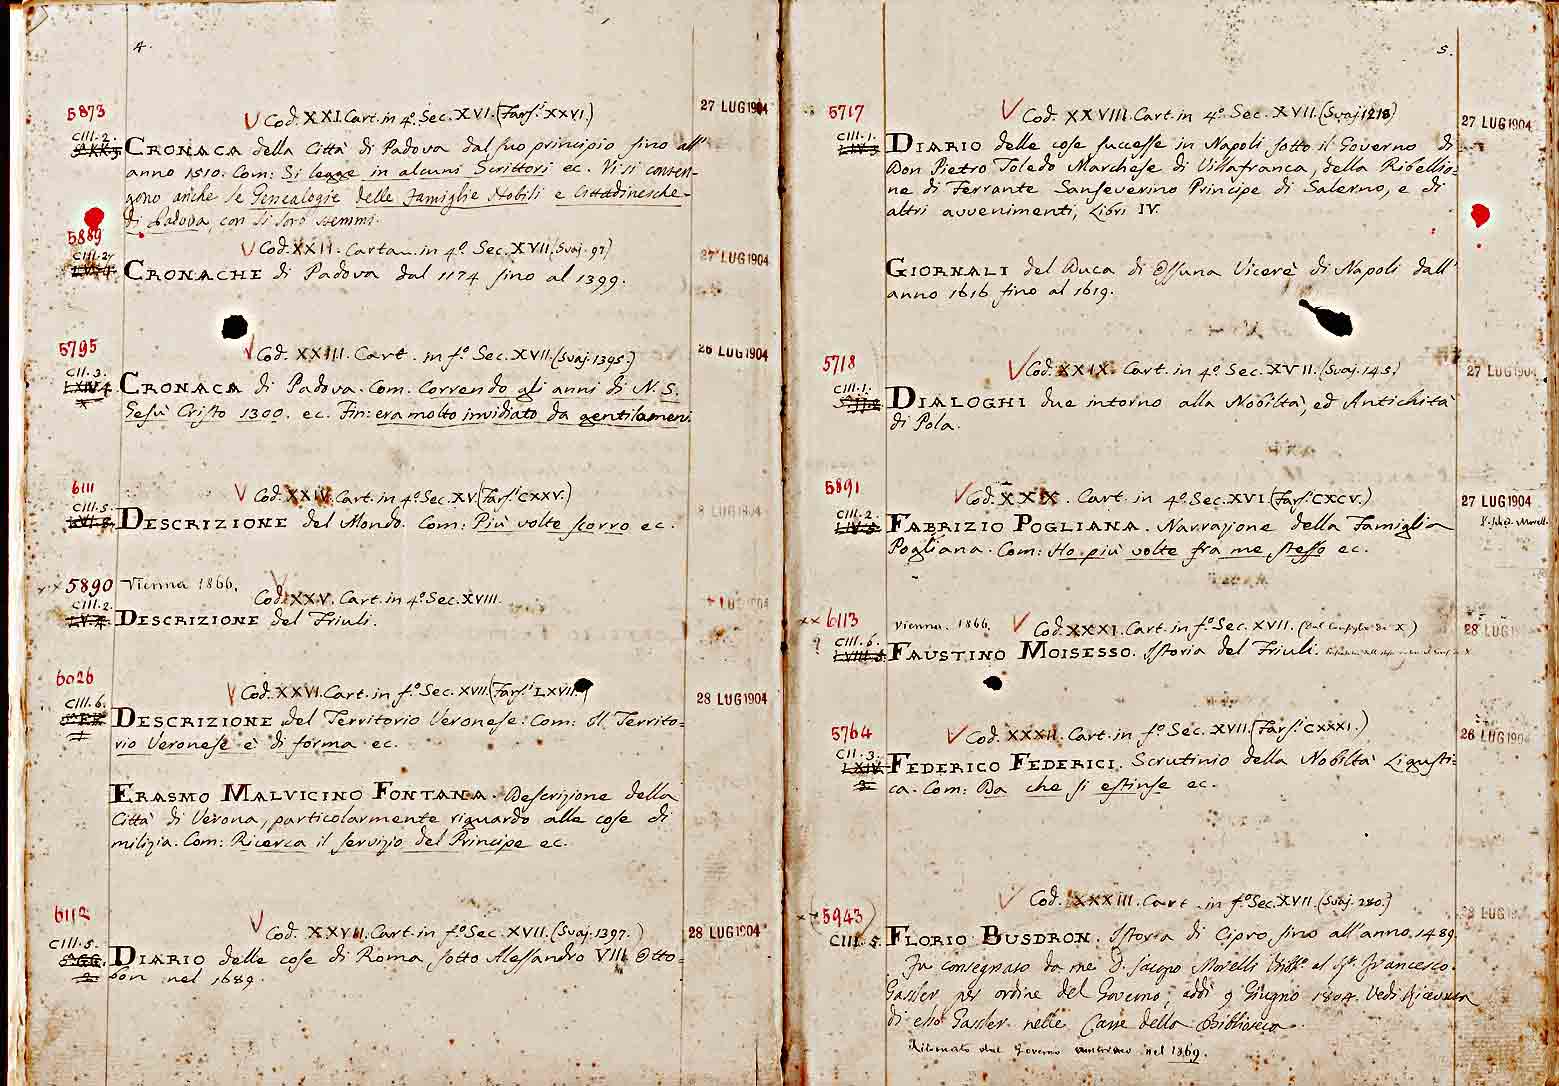 4.
5873
V Cod. XXI. Cart. in 4º. Sec. XVI. (Fars. XXVI.)
27 LUG 1904
CIII. 2.
CRONACA della Città di Padova dal suo principio sino all'
anno 1510. Com: Si legge in alcuni Scrittori ec. Vi si conten-
gono anche le Genealogie delle Famiglie Nobili e Cittadinesche
di Padova, con li loro stemmi.
5889
V Cod. XXII. Carta. in 4º. Sec. XVII. (Svaj. 97)
27 LUG 1904
CIII. 2.
CRONACHE di Padova dal 1174 sino al 1399.
5795
V Cod. XXIII. Cart. in fº. Sec. XVII. (Svaj. 1395.)
26 LUG 1904
CII. 3.
LXIV. 4
CRONACA di Padova. Com. Correndo gli anni di N. S.
Gesù Cristo 1300. ec. Fin: era molto invidiato da gentilomeni.
6111
V Cod. XXIV. Cart. in 4º. Sec. XV. (Fars. CXXV.)
8 LUG 1904
CIII. 5.
DESCRIZIONE del Mondo. Com: Più volte scorro ec.
×× 5890 Vienna 1866.
V Cod. XXV. Cart. in 4º. Sec. XVIII.
CIII. 2.
LV. 4.
LUG 1904
DESCRIZIONE del Friuli.
6026
V Cod. XXVI. Cart. in fº. Sec. XVII. (Fars. LXVII.)
28 LUG 1904
CIII. 6.
DESCRIZIONE del Territorio Veronese: Com: Il Territo=
rio Veronese è di forma ec.
ERASMO MALVICINO FONTANA. Descrizione della
Città di Verona, particolarmente riguardo alle cose di
milizia. Com: Ricerca il servizio del Principe ec.
6112
V Cod. XXVII. Cart. in fº. Sec. XVII. (Svaj. 1397.)
28 LUG 1904
CIII. 5.
DIARIO delle cose di Roma sotto Alessandro VIII Otto=
bon nel 1689.
5.
5717
V Cod. XXVIII. Cart. in 4º. Sec. XVII. (Svaj. 1218)
27 LUG 1904
CIII. 1.
DIARIO delle cose successe in Napoli sotto il Governo di
Don Pietro Toledo Marchese di Villafranca, della Ribellio=
ne di Ferrante Sanseverino Principe di Salerno, e di
altri avvenimenti, Libri IV.
GIORNALI del Duca di Ossuna Vicerè di Napoli dall'
anno 1616 sino al 1619.
5718
V Cod. XXIX. Cart. in 4º. Sec. XVII. (Svaj. 145)
27 LUG 1904
CIII. 1.
DIALOGHI due intorno alla Nobiltà, ed Antichità
di Pola.
5891
V Cod. XXX. Cart. in 4º. Sec. XVI. (Fars. CXCV.)
27 LUG 1904
CIII. 2.
LIV. 5
FABRIZIO POGLIANA. Narrazione della Famiglia
Pogliana. Com: Ho più volte fra me stesso ec.
×× 6113 Vienna. 1866.
V Cod. XXXI. Cart. in fº. Sec. XVII.
28 LUG
CIII. 6.
? LVIII. 5
FAUSTINO MOISESSO. Istoria del Friuli.
5764
V Cod. XXXII. Cart. in fº. Sec. XVII. (Fars. CXXXI.)
26 LUG 1904
CII. 3.
LXIV.
3
FEDERICO FEDERICI. Scrutinio della Nobiltà Ligusti=
ca. Com: Da che si estinse ec.
V Cod. XXXIII. Cart. in fº. Sec. XVII. (Svaj. 280.)
28 LUG 1904
×× (5943)
CIII. 5.
FLORIO BUSDRON. Istoria di Cipro sino all'anno 1489
Fu consegnato da me D. Jacopo Morelli Bibl. al Sr. Francesco
Gassler per ordine del Governo, addì 9 Giugno 1804. Vedi Ricevuta
di esso Gassler nelle Carte della Biblioteca.
Ritornato dal Governo austriaco nel 1869.